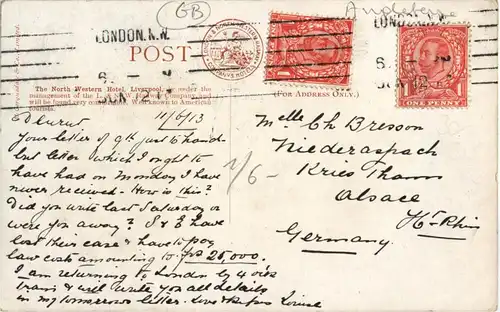 GB
Angleterre
LONDON.N.W.
POST
LONDON & NORTH WESTERN RAILWAY
ONE PENNY
The North Western Hotel, Liverpool, is under the
management of the L. & N.W. Railway Company, and
will be found very Well known to American
tourists.
(FOR ADDRESS ONLY.)
11/6/13
Your letter of 9th just to hand -
but letter which I ought to
have had on Monday I have
never received - How is this?
Did you write last Saturday or
were you away? S & E have
lost their case & have to pay
law costs amounting to frs 25,000.
I am returning to London by 4 o'c
train & will write you all details
in my tomorrows letter. Love & Louise
1/6-
Melle Ch Bresson
Niederaspach
Kries Thann
Alsace
Ht Rhin
Germany